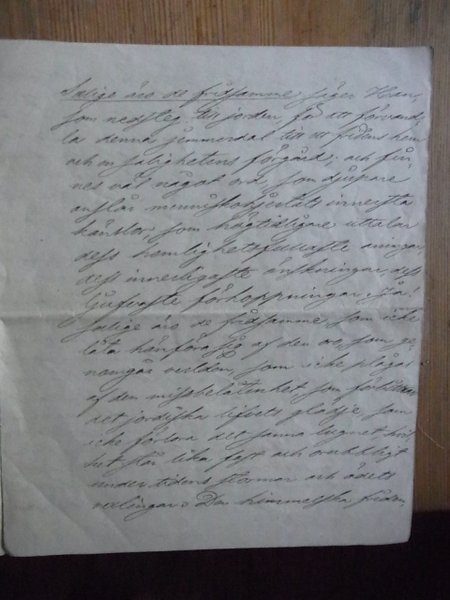 Salige äro de fridsamme, säger Han,
som nedsteg till jorden, för att förvand-
la denna jemmerdal till ett fridens hem
och en salighetens förgård; och fin-
nes väl något ord, som djupare
anslår menniskohjertats innersta
känslor, som högtidligare uttalar
dess hemlighetsfullaste aningar,
dess innerligaste önskningar, dess
ljufvaste förhoppningar. Ja!
salige äro de fridsamme, som icke
låta hänföra sig af den oro, som ge-
nomgår verlden, som icke plågas
af den missbelåtenhet som förbittrar
det jordiska lifvets glädje, som
icke förlora det sanna lugnet, hvil-
ket står lika fast och orubbligt
under tidens stormar och ödets
vexlingar. Den himmelska friden,